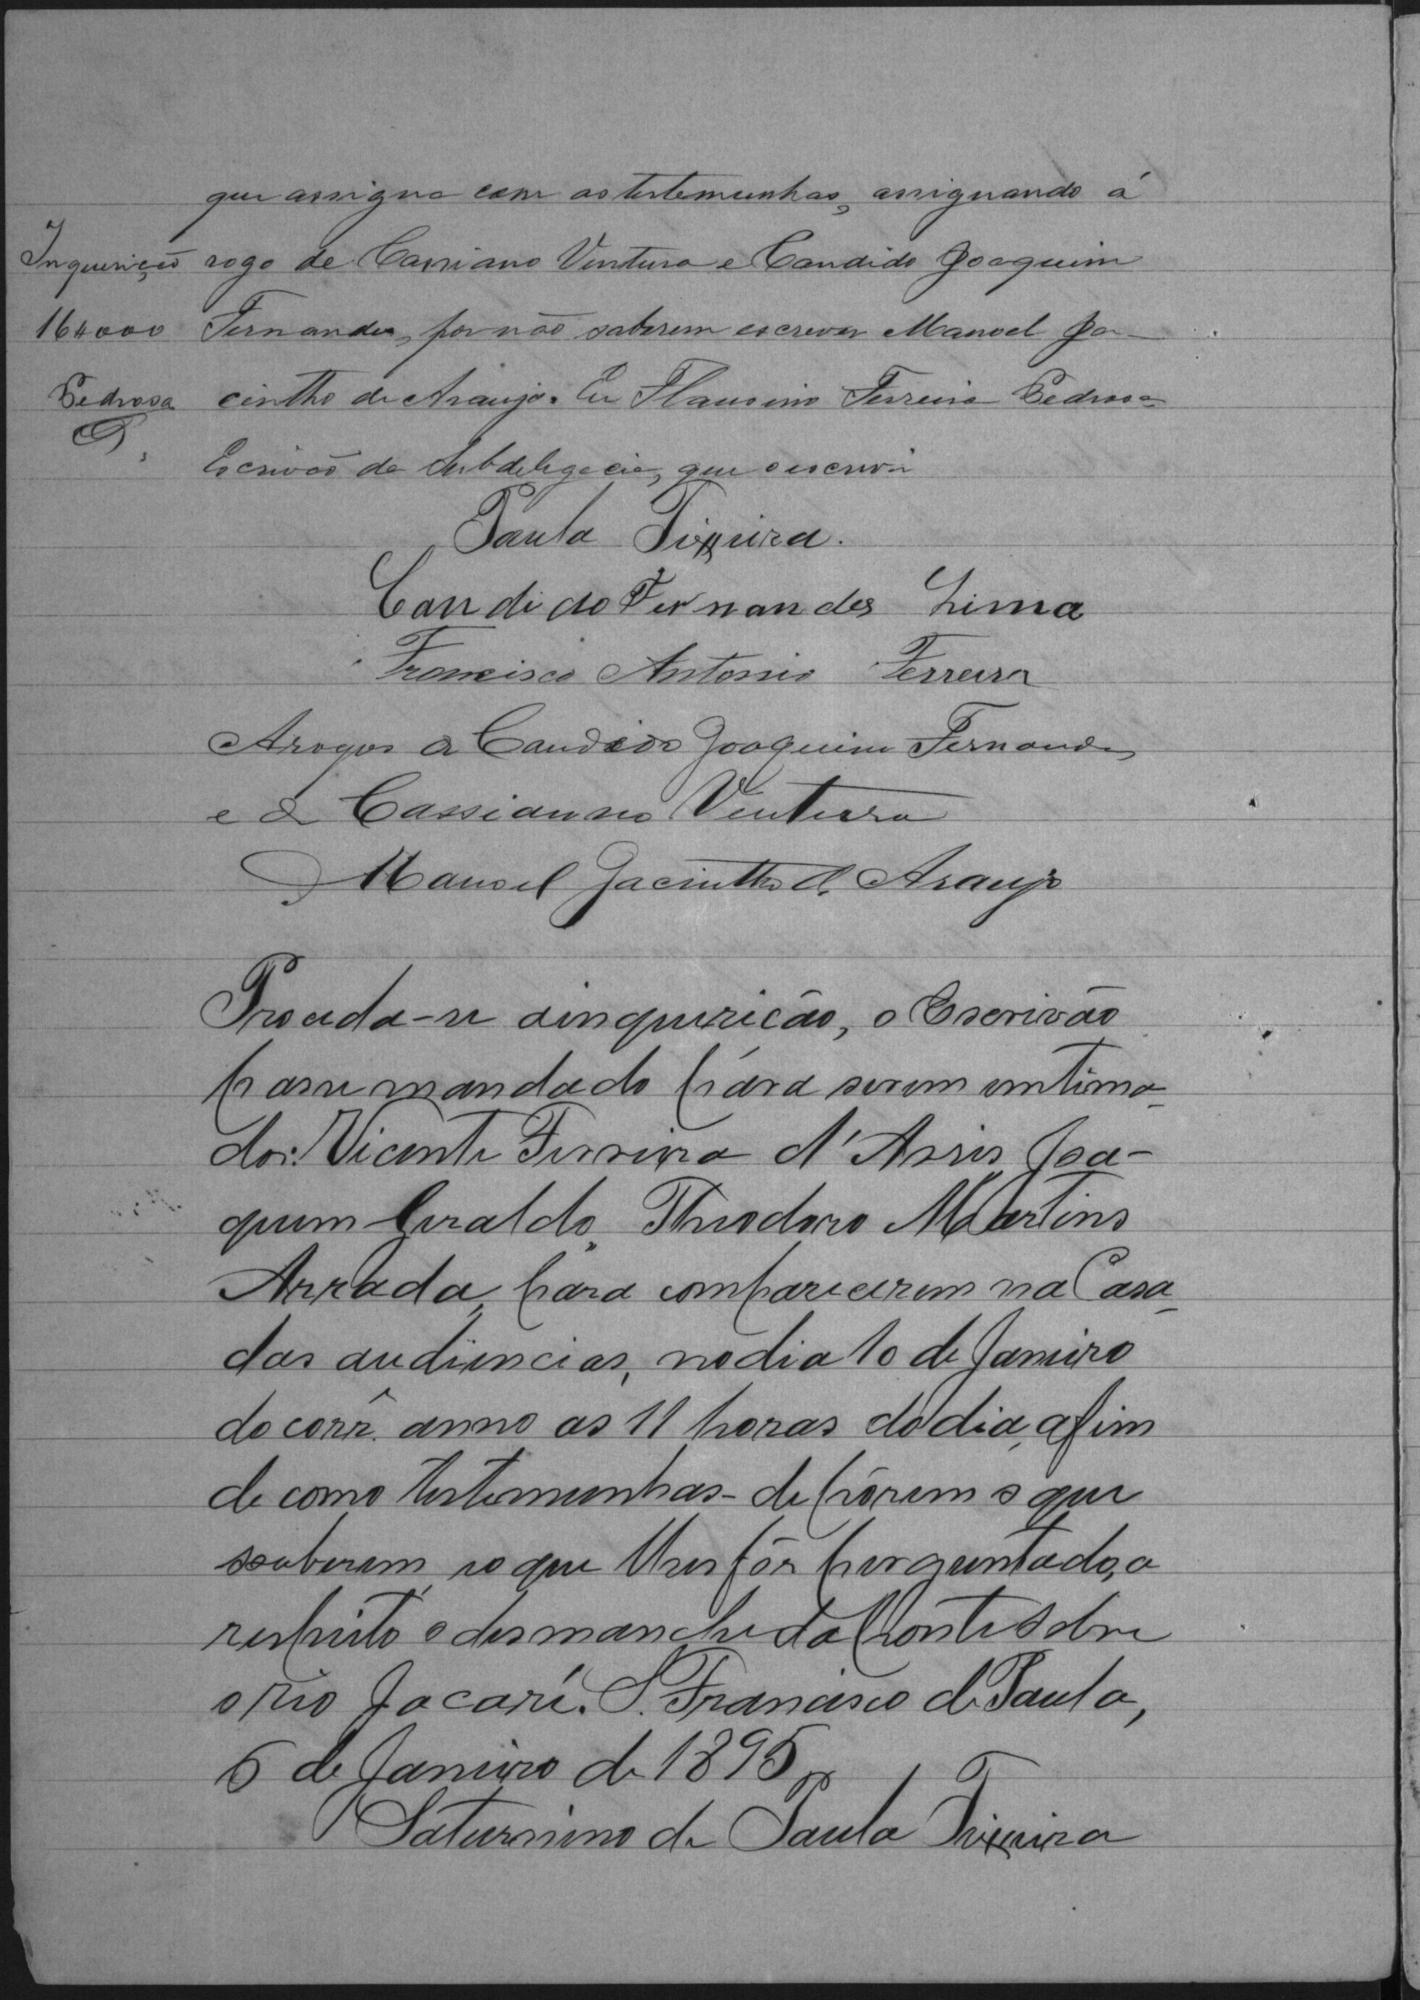 que assigna com as testemunhas, assignando á
Inquirição
rogo de Cassiano Ventura e Candido Joaquim
16$000
Fernandes, por não saberem escrever Manoel Ja-
Pedrosa
cintho de Araujo. Eu Flausino Ferreira Pedrosa
Escrivão da Subdelegacia, que o escrevi
Paula Teixeira.
Candido Fernandes Lima
Francisco Antonio Ferreira
Arogos a Candido Joaquim Fernandes
e a Cassianno Ventura
Manoel Jacintho d. Araujo
Proceda-se a inquirição, o Escrivão
passe mandado pára serem intima-
dos: Vicente Ferreira d'Assis, Joa-
quim Geraldo, Theodoro Martins
Arrada, para comparecerem na Casa
das audiencias, no dia 10 de Janeiro
do corr.^e anno as 11 horas do dia, afim
de como testemunhas - depôrem o que
souberem, e o que lhes fôr perguntado, a
respeito o desmanche da ponte sobre
o rio Jacaré. S. Francisco de Paula,
5 de Janeiro de 1895
Saturnino de Paula Teixeira